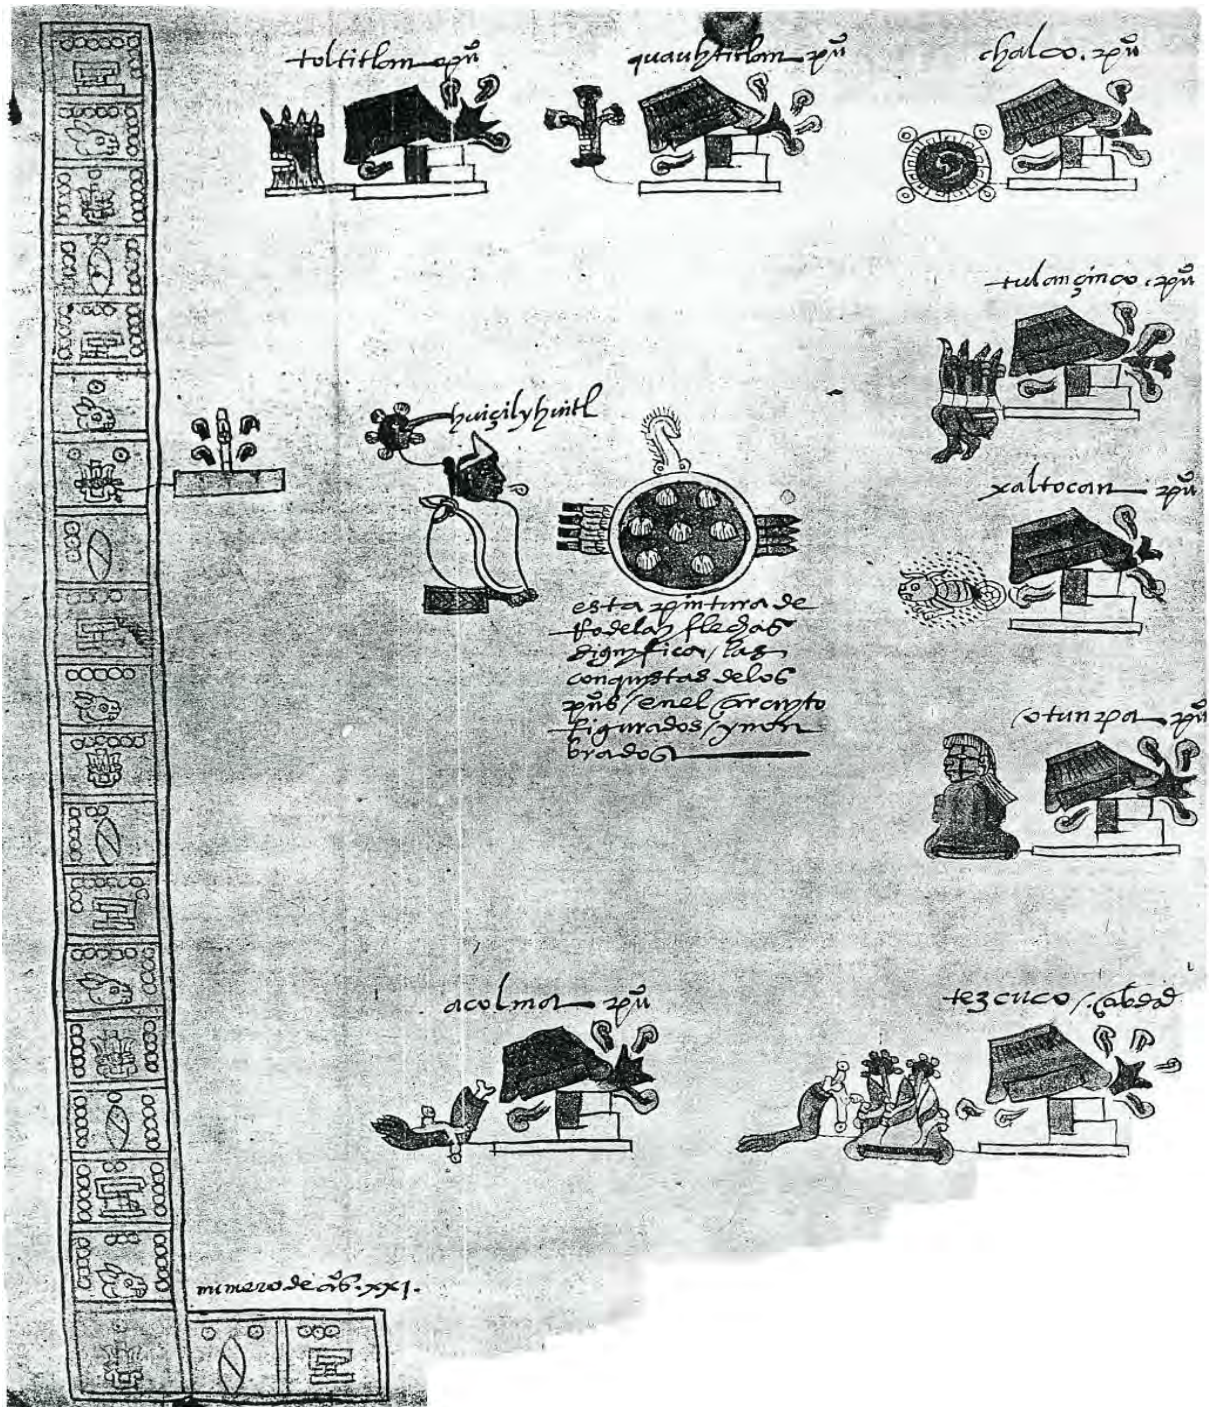 toltitlan . puº
quauhtitlan . puº
chalco . puº
tulançinco . puº
huiçilyhuitl
xaltocan puº
esta pintura de
Rodela y flechas
significa / las
conquistas delos
puºs / en el circuyto
figurados / y non
brados
otunpa puº
acolma puº
tezcuco / çabdad
numero de aºs . xxi .